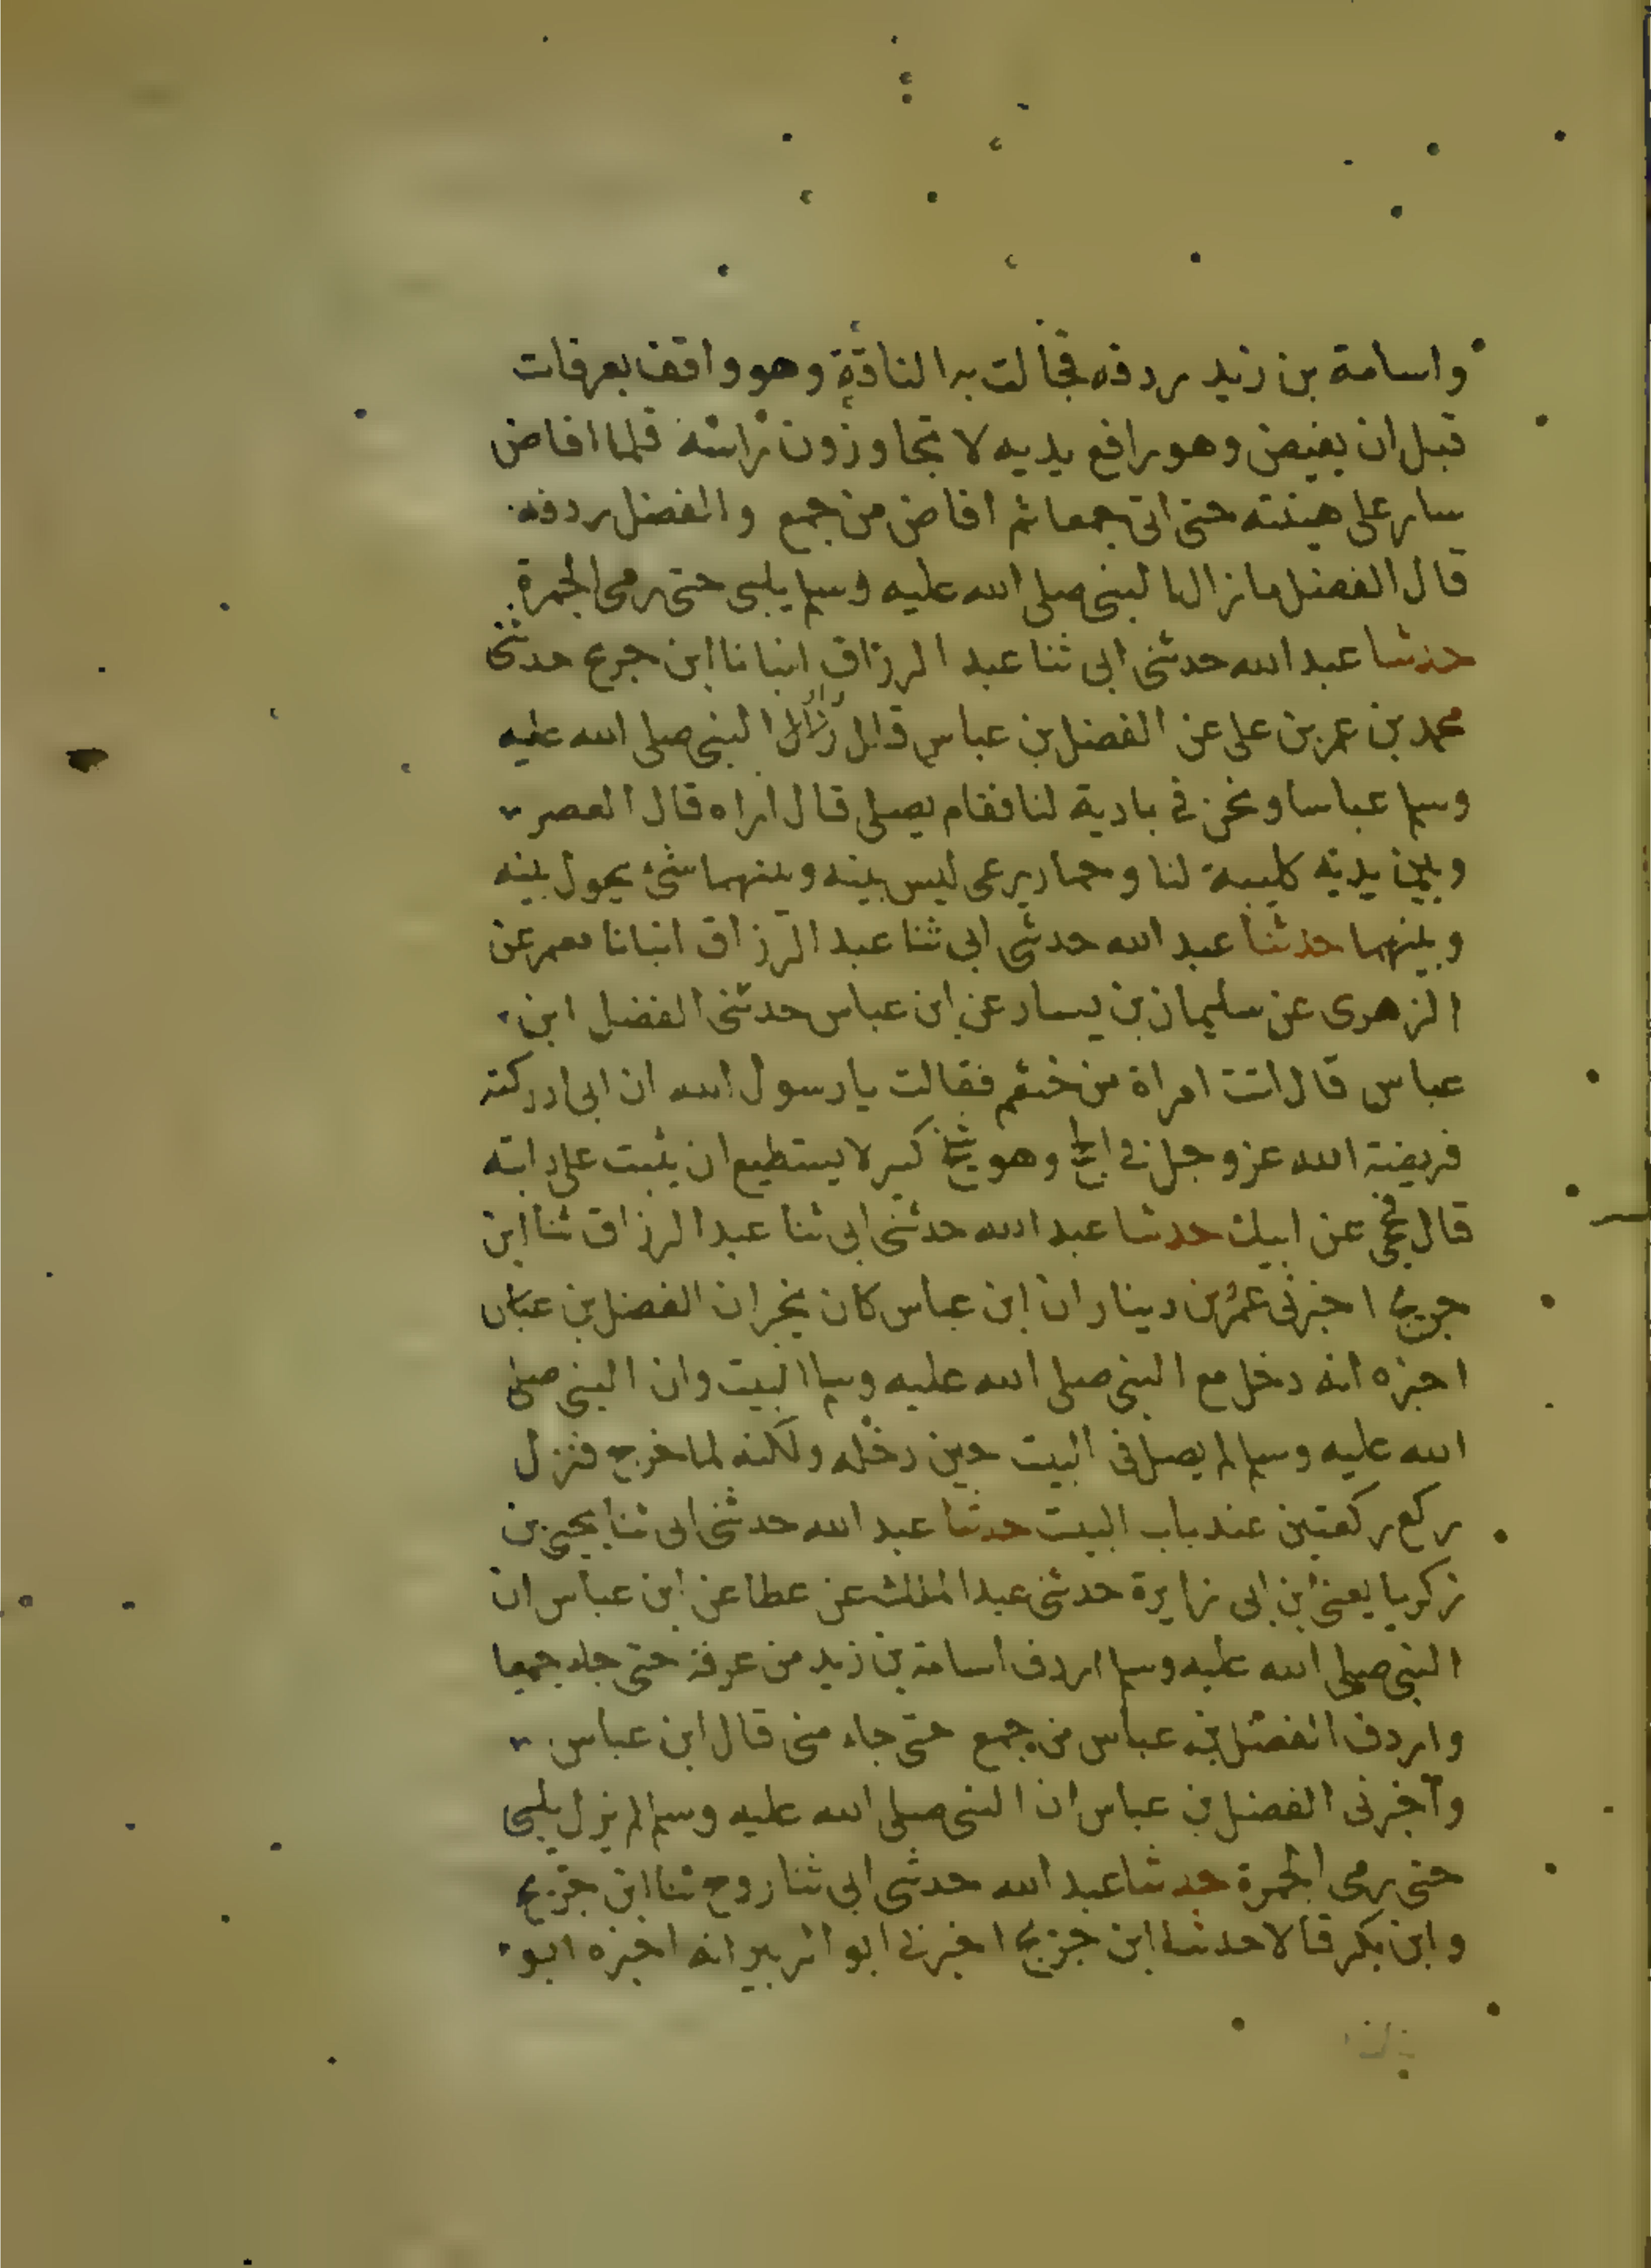 واسامة بن زيد ردفه فجالت به الناقة وهو واقف بعرفات
قبل ان يفيض وهو رافع يديه لا تجاوزون راسه فلما افاض
سار على هينته حتى اتى جمعا ثم افاض من جمع والفضل ردفه
قال الفضل ما زال النبي صلى الله عليه وسلم يلبي حتى رمى الجمرة
حدثنا عبد الله حدثني ابي ثنا عبد الرزاق انبانا ابن جريج حدثني
محمد بن عمر بن علي عن الفضل بن عباس قال زار النبي صلى الله عليه
وسلم عباسا ونحن في بادية لنا فقام يصلي قال اراه قال العصر
وبين يديه كليبة لنا وحمار يرعى ليس بينه وبينهما شئ يحول بينه
وبينهما حدثنا عبد الله حدثني ابي ثنا عبد الرزاق انبانا معمر عن
الزهرى عن سليمان بن يسار عن ابن عباس حدثني الفضل ابن
عباس قال اتت امراة من خثعم فقالت يا رسول الله ان ابي ادركته
فريضة الله عز وجل في الحج وهو شيخ كبير لا يستطيع ان يثبت على دابته
قال فحجي عن ابيك حدثنا عبد الله حدثني ابي ثنا عبد الرزاق ثنا ابن
جريج اخبرني عمرو بن دينار ان ابن عباس كان يخبر ان الفضل بن عباس
اخبره انه دخل مع النبي صلى الله عليه وسلم البيت وان النبي صلى
الله عليه وسلم لم يصل في البيت حين دخله ولكنه لما خرج فنزل
ركع ركعتين عند باب البيت حدثنا عبد الله حدثني ابي ثنا يحيى بن
زكريا يعني ابن ابي زايدة حدثني عبد الملك عن عطا عن ابن عباس ان
النبي صلى الله عليه وسلم اردف اسامة بن زيد من عرفة حتى جاء جمعا
واردف الفضل بن عباس من جمع حتى جاء منى قال ابن عباس
واخبرني الفضل بن عباس ان النبي صلى الله عليه وسلم لم يزل يلبي
حتى رمى الجمرة حدثنا عبد الله حدثني ابي ثنا روح ثنا ابن جريج
وابن بكر قالا حدثنا ابن جريج اخبرني ابو الزبير انه اخبره ابو